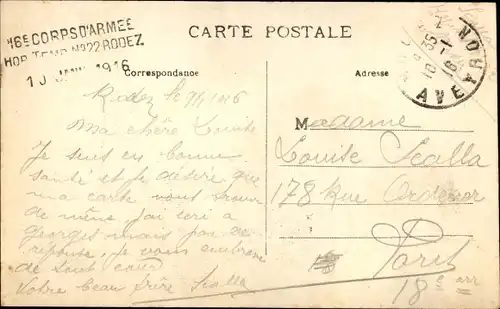 16E CORPS D'ARMÉE
HOP. TEMP. N°22 RODEZ
10 JANV 1916
CARTE POSTALE
Correspondance
Adresse
AVEYRON
Rodez le 9/1 1916
Ma chère Louise
Je suis en bonne
santé et je désire que
ma carte vous trouve
de même, j'ai écri a
Georges mais pas de
réponse, je vous embrasse
de tout cœur
Votre beau frère Scalla
Madame
Louise Scalla
178 Rue Ordener
Paris
18e arr